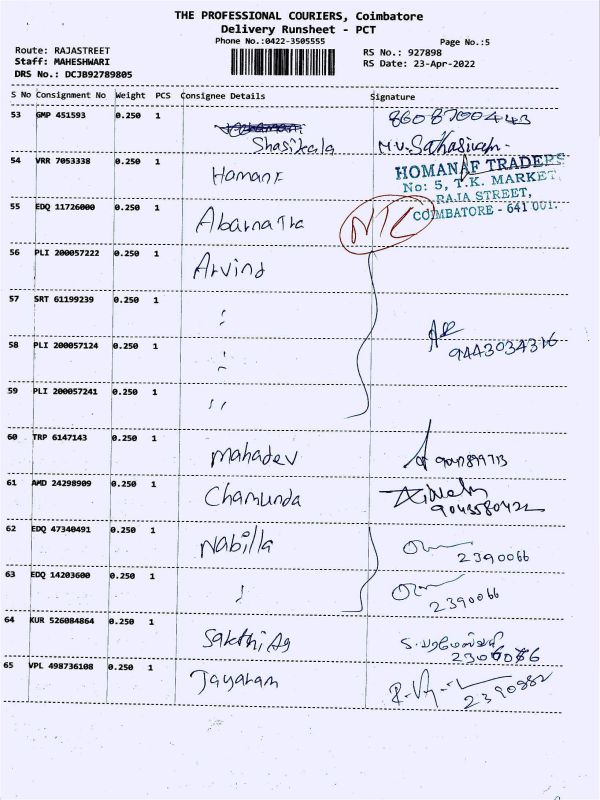 THE PROFESSIONAL COURIERS, Coimbatore
Delivery Runsheet - PCT
Phone No.:0422-3505555
Page No.:5
Route: RAJASTREET
RS No.: 927898
Staff: MAHESHWARI
RS Date: 23-Apr-2022
DRS No.: DCJB92789805
S No Consignment No Weight PCS Consignee Details Signature
53 GMP 451593 0.250 1 8608700443
Shasikala M.V. Sathasivam
54 VRR 7053338 0.250 1 HomanF
HOMANAF TRADERS
No: 5, T.K. MARKET,
RAJA STREET,
COIMBATORE - 641 001.
55 EDQ 11726000 0.250 1 Abarnatra NTC
56 PLI 200057222 0.250 1 Arvind
57 SRT 61199239 0.250 1 "
58 PLI 200057124 0.250 1 "
9443034316
59 PLI 200057241 0.250 1 "
60 TRP 6147143 0.250 1 mahadev
61 AMD 24298909 0.250 1 Chamunda
62 EDQ 47340491 0.250 1 Nabilla 2390066
63 EDQ 14203600 0.250 1 " 2390066
64 KUR 526084864 0.250 1 Sakthi Ag
65 VPL 498736108 0.250 1 Jayaram 2390882